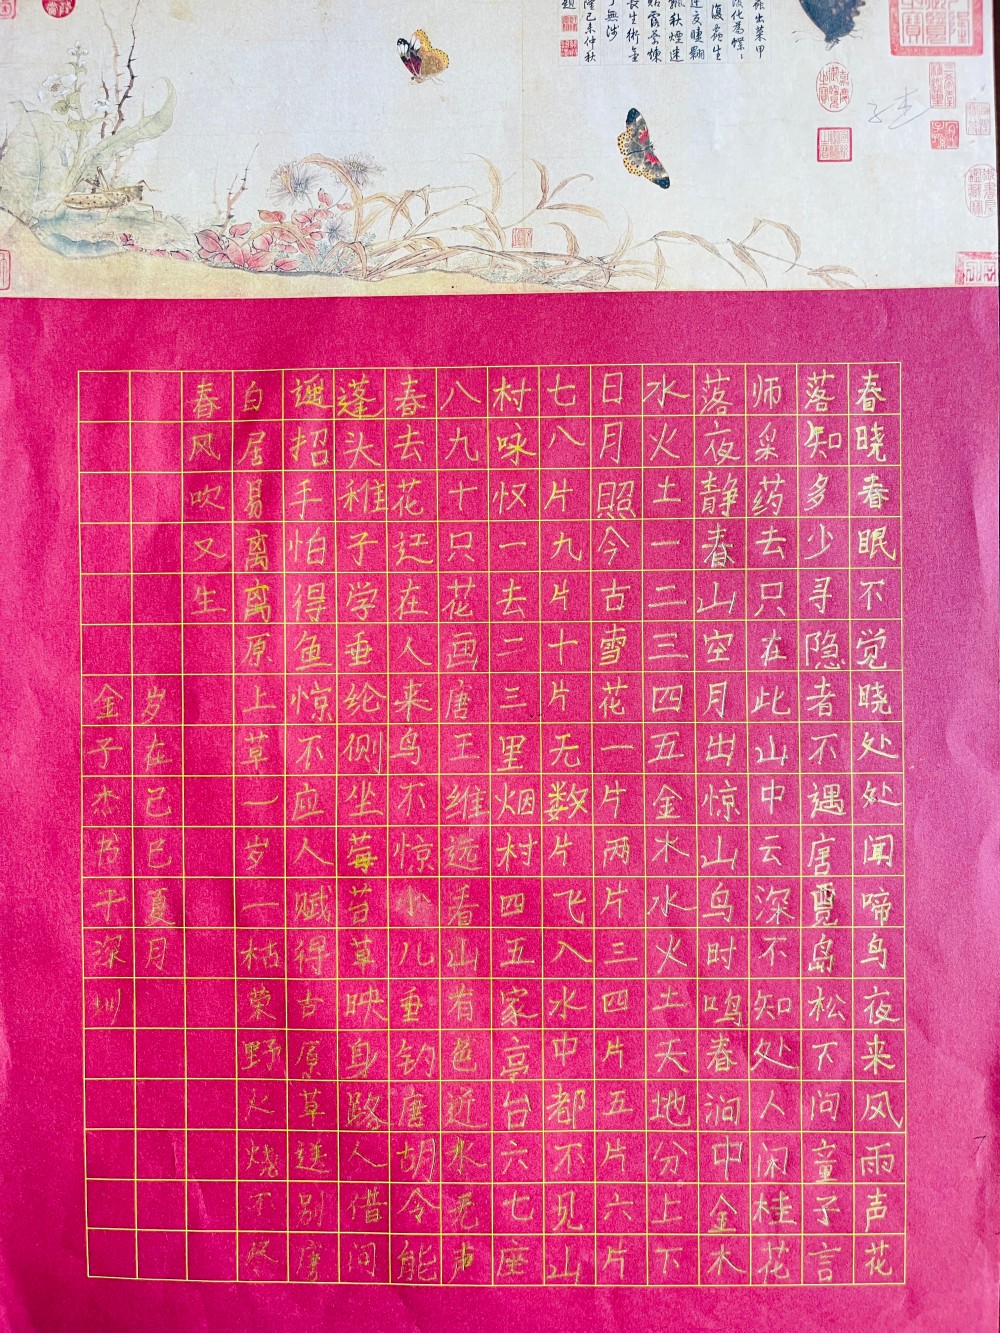 蟲出菜甲
化為蝶
長生術
隆己未仲秋
春晓春眠不觉晓处处闻啼鸟夜来风雨声花
落知多少寻隐者不遇唐賈岛松下问童子言
师采药去只在此山中云深不知处人闲桂花
落夜静春山空月出惊山鸟时鸣春涧中金木
水火土一二三四五金木水火土天地分上下
日月照今古雪花一片两片三四片五片六片
七八片九片十片无数片飞入水中都不见山
村咏怀一去二三里烟村四五家亭台六七座
八九十只花画唐王维远看山有色近水无声
春去花还在人来鸟不惊小儿垂钓唐胡令能
蓬头稚子学垂纶侧坐莓苔草映身路人借问
遥招手怕得鱼惊不应人赋得古原草送别唐
白居易离离原上草一岁一枯荣野火烧不尽
春风吹又生
岁在己巳夏月
金子杰书于深圳